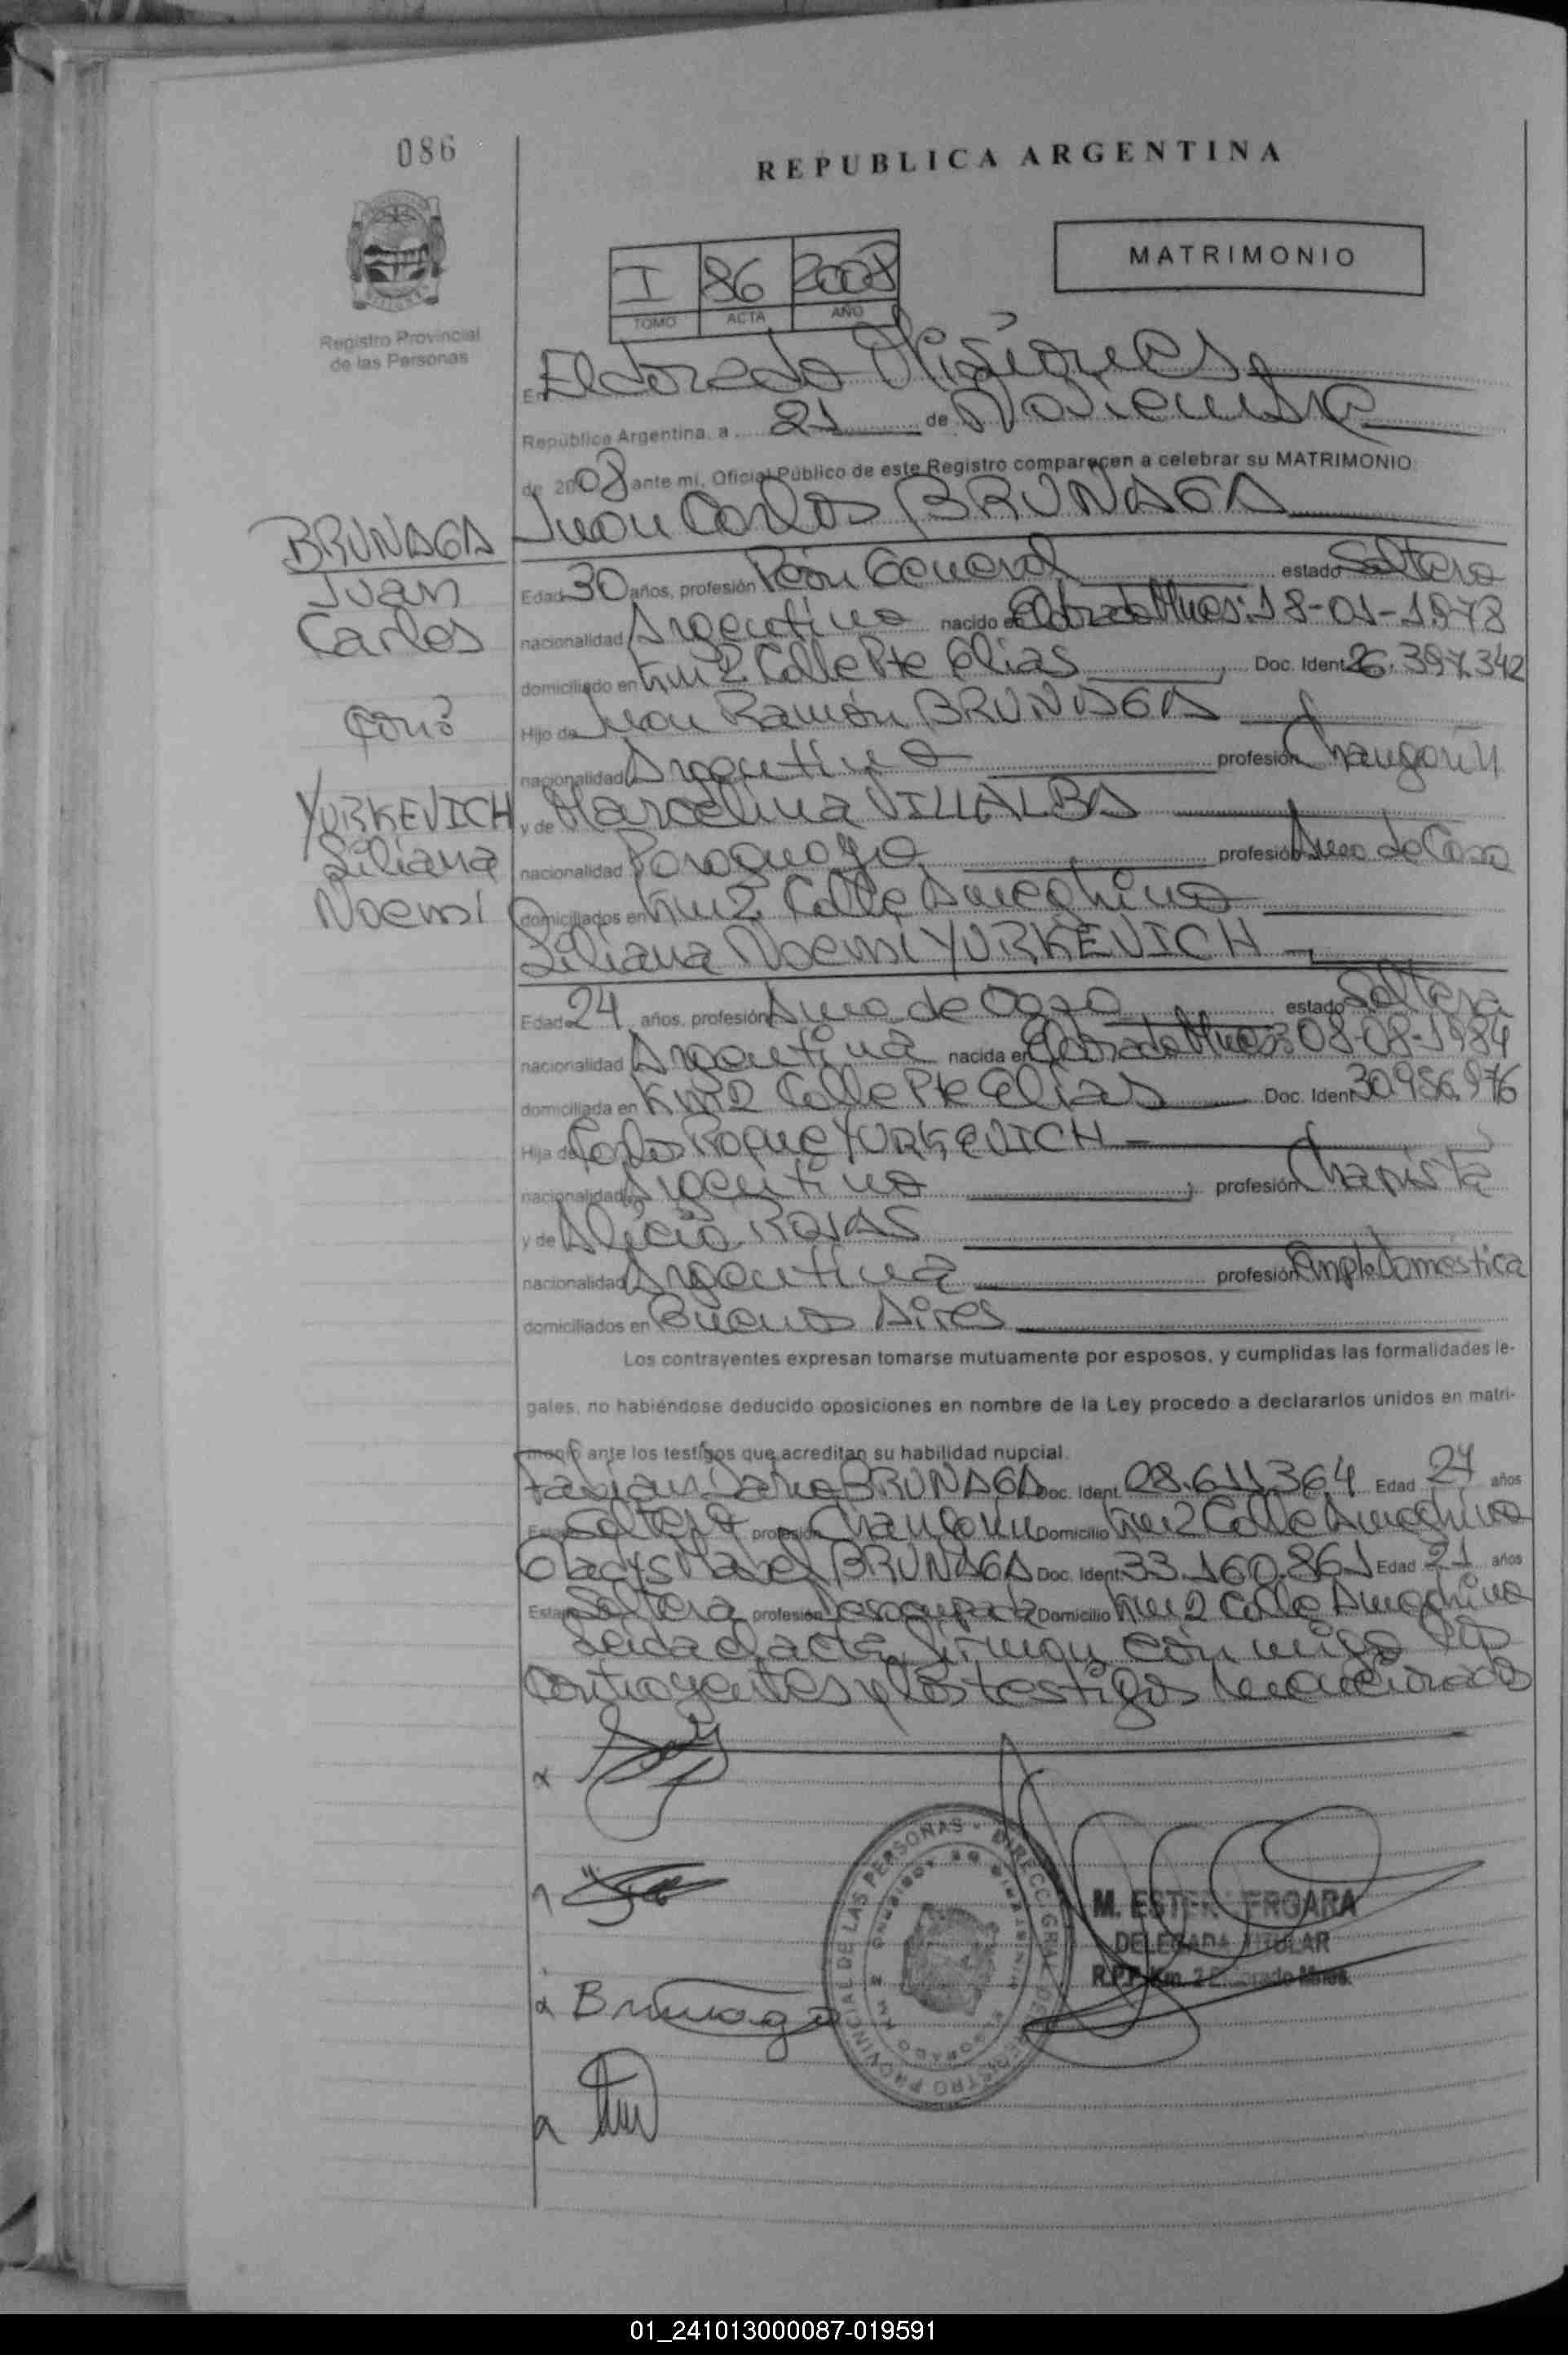 086
REPUBLICA ARGENTINA
MATRIMONIO
I 86 2008
TOMO ACTA AÑO
Registro Provincial
de las Personas
En Eldorado Misiones,
República Argentina, a 21 de Noviembre
de 2008 ante mí, Oficial Público de este Registro comparecen a celebrar su MATRIMONIO
Juan Carlos BRUNAGA
BRUNAGA
Juan
Carlos
Con:
YURKEVICH
Liliana
Noemí
Edad 30 años, profesión Peón General estado Soltero
nacionalidad Argentino nacido en Eldorado Mnes: 18-01-1978
domiciliado en Km 2 Calle Pte Elias, Doc. Ident 26.397.342
Hijo de Juan Ramón BRUNAGA
nacionalidad Argentino profesión Changarín
y de Marcelina VILLALBA
nacionalidad Paraguaya profesión Ama de Casa
domiciliados en Km 2 Calle Ameghino
Liliana Noemi YURKEVICH
Edad 24 años, profesión Ama de Casa estado Soltera
nacionalidad Argentina nacida en Eldorado Mnes: 08-08-1984
domiciliada en Km 2 Calle Pte Elias Doc. Ident 30.956.976
Hija de Carlos Roque YURKEVICH
nacionalidad Argentino profesión Chapista
y de Alicia ROJAS
nacionalidad Argentina profesión Empl. Domestica
domiciliados en Buenos Aires
Los contrayentes expresan tomarse mutuamente por esposos, y cumplidas las formalidades le-
gales, no habiéndose deducido oposiciones en nombre de la Ley procedo a declararlos unidos en matri-
monio ante los testigos que acreditan su habilidad nupcial.
Fabian Dario BRUNAGA Doc. Ident. 28.611.364 Edad 27 años
Estado Soltero profesión Changarin Domicilio Km 2 Calle Ameghino
Gladys Mabel BRUNAGA Doc. Ident. 33.160.861 Edad 21 años
Estado Soltera profesión Desocupada Domicilio Km 2 Calle Ameghino
Leida el acta, firman con migo los
Contrayentes y los testigos mencionados
Brunaga
REGISTRO PROVINCIAL DE LAS PERSONAS - DIRECC. GRAL. DEL
M. ESTER VERGARA
DELEGADA TITULAR
R.P.P. Km. 2 Eldorado Mnes.
01_241013000087-019591